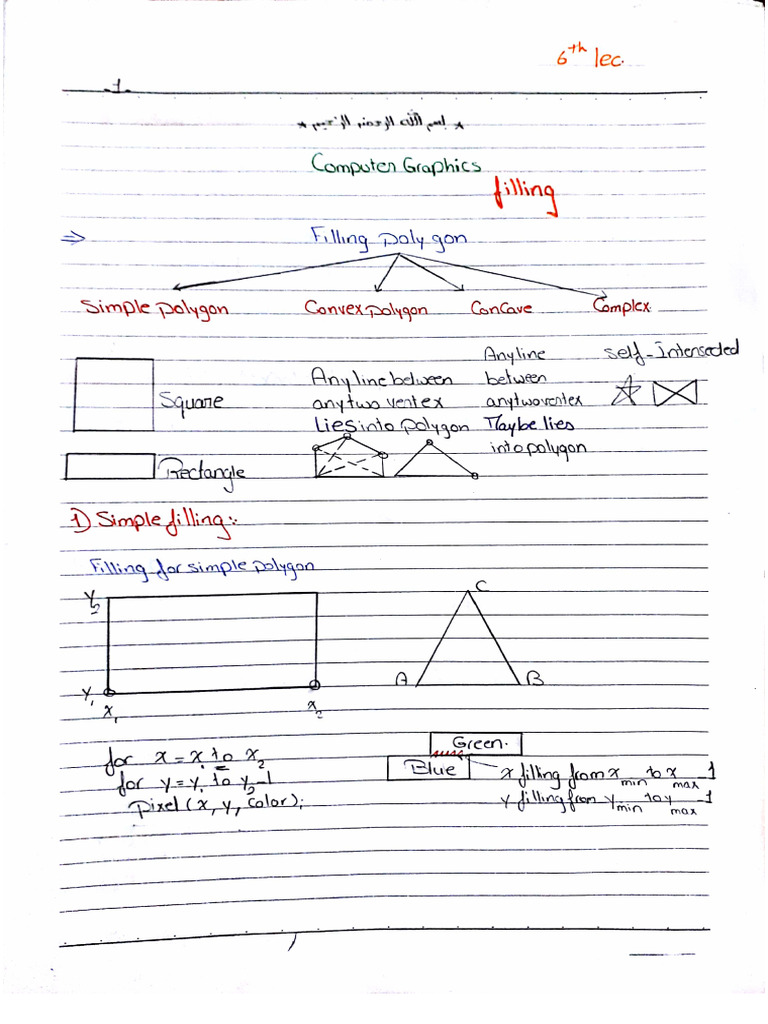 6th lec.
-1-
* بسم الله الرحمن الرحيم *
Computer Graphics
filling
⇒ Filling polygon
Simple polygon Convex polygon Concave Complex
Square
Rectangle
Any line between
any two vertex
Lies into polygon
Any line
between
any two vertex
Maybe lies
into polygon
self-Intersected
1) Simple filling:
Filling for simple polygon
y₂
y₁
x₁
x₂
C
A
B
for x = x₁ to x₂
for y = y₁ to y₂-1
pixel(x, y, color);
Green.
Blue
x filling from x min to x max -1
y filling from y min to y max -1